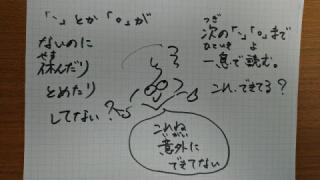 「、」とか「。」が
ないのに
休んだり
やす
とめたり
してない?
つぎ
次の「、」「。」まで
ひといき よ
一息で読む。
これ、できてる?
これね、
いがい
意外に
できてない